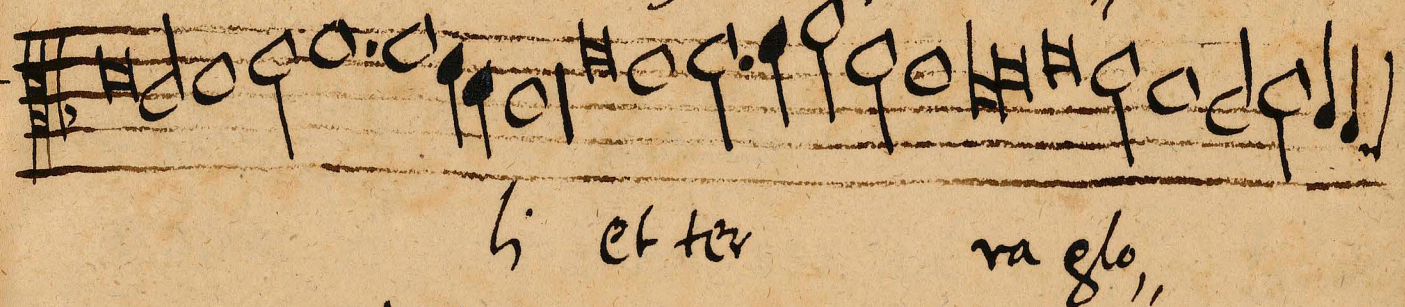 li et ter ra glo,,